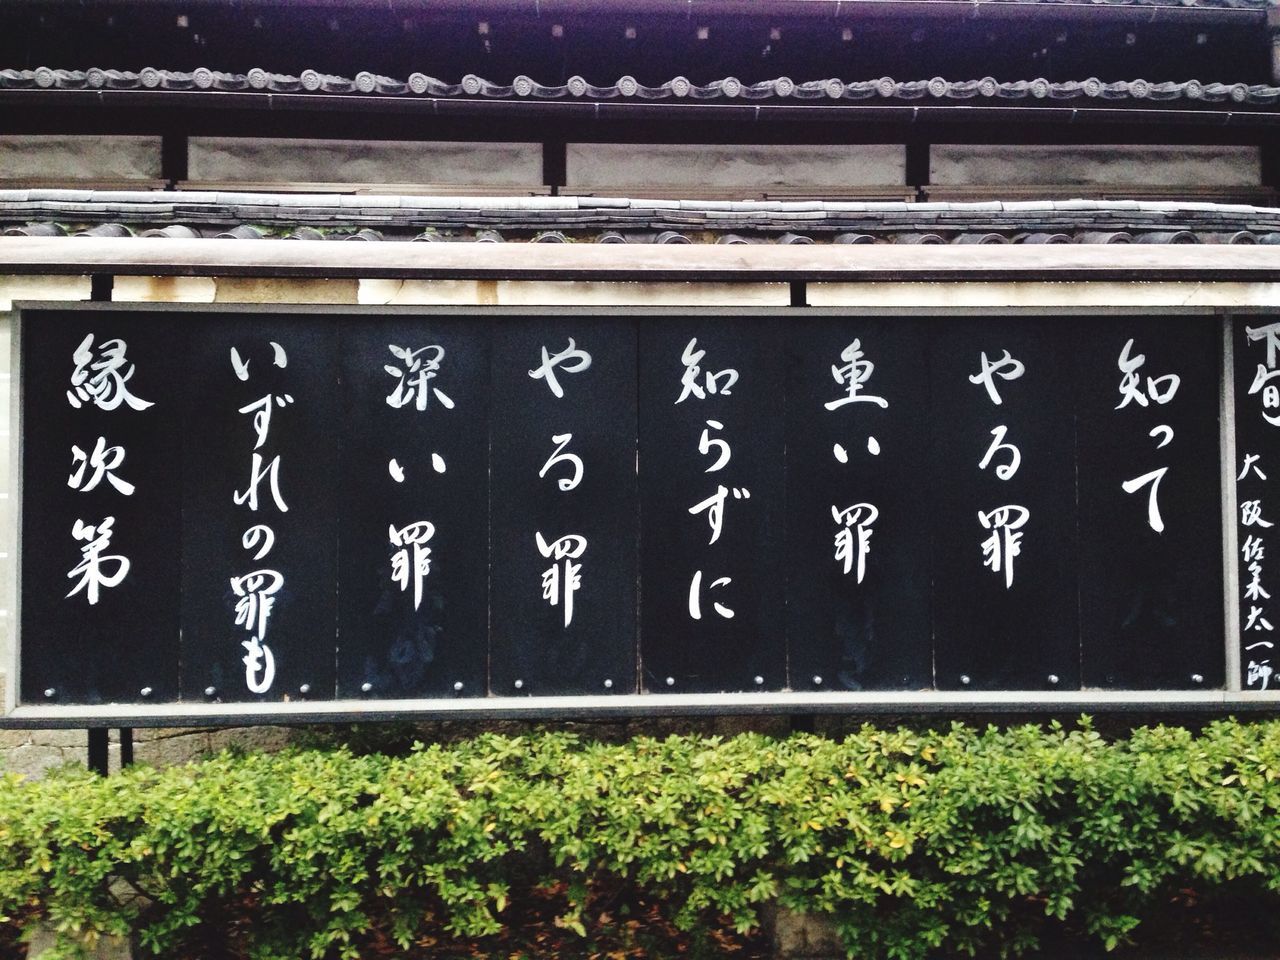 下旬 大阪佐々木太一師
知って
やる罪
重い罪
知らずに
やる罪
深い罪
いずれの罪も
縁次第